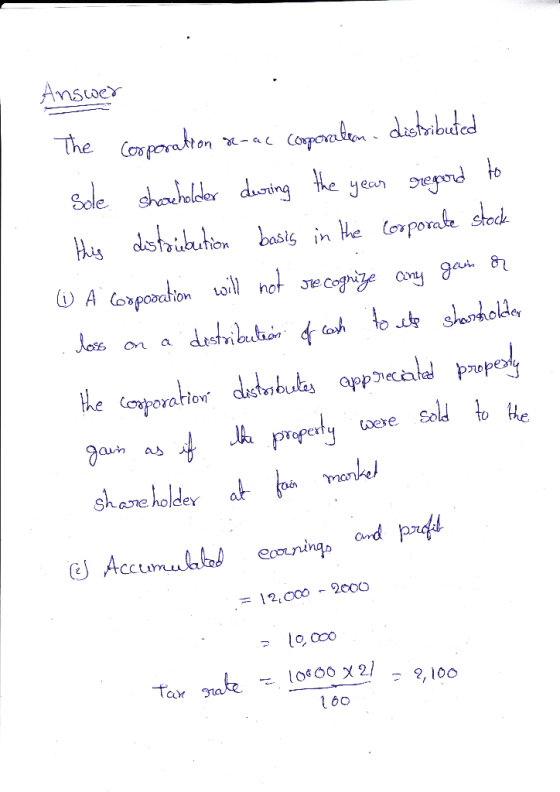 Answer
The Corporation x-ac corporation. distributed
Sole shareholder during the year regard to
this distribution basis in the corporate stock
(i) A corporation will not recognize any gain or
loss on a distribution of cash to its shareholder
the corporation distributes appreciated property
gain as if the property were sold to the
shareholder at fair market
(2) Accumulated earnings and profit
= 12,000 - 2000
= 10,000
Tax rate = 10000 x 21 / 100 = 2,100